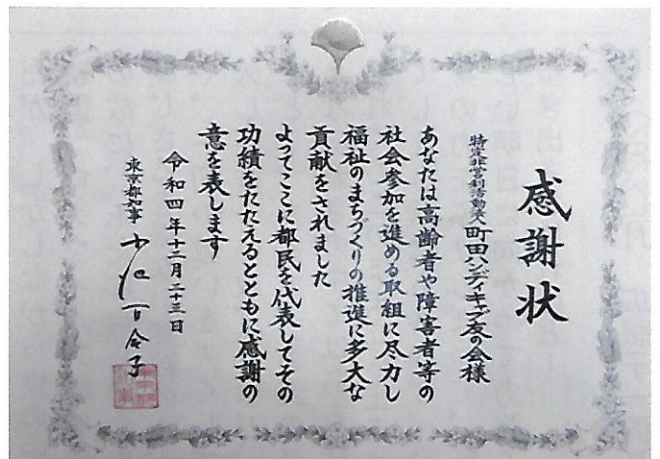 感謝状
特定非営利活動法人 町田ハンディキャブ友の会様
あなたは高齢者や障害者等の
社会参加を進める取組に尽力し
福祉のまちづくりの推進に多大な
貢献をされました
よってここに都民を代表してその
功績をたたえるとともに感謝の
意を表します
令和四年十二月二十三日
東京都知事 小池百合子